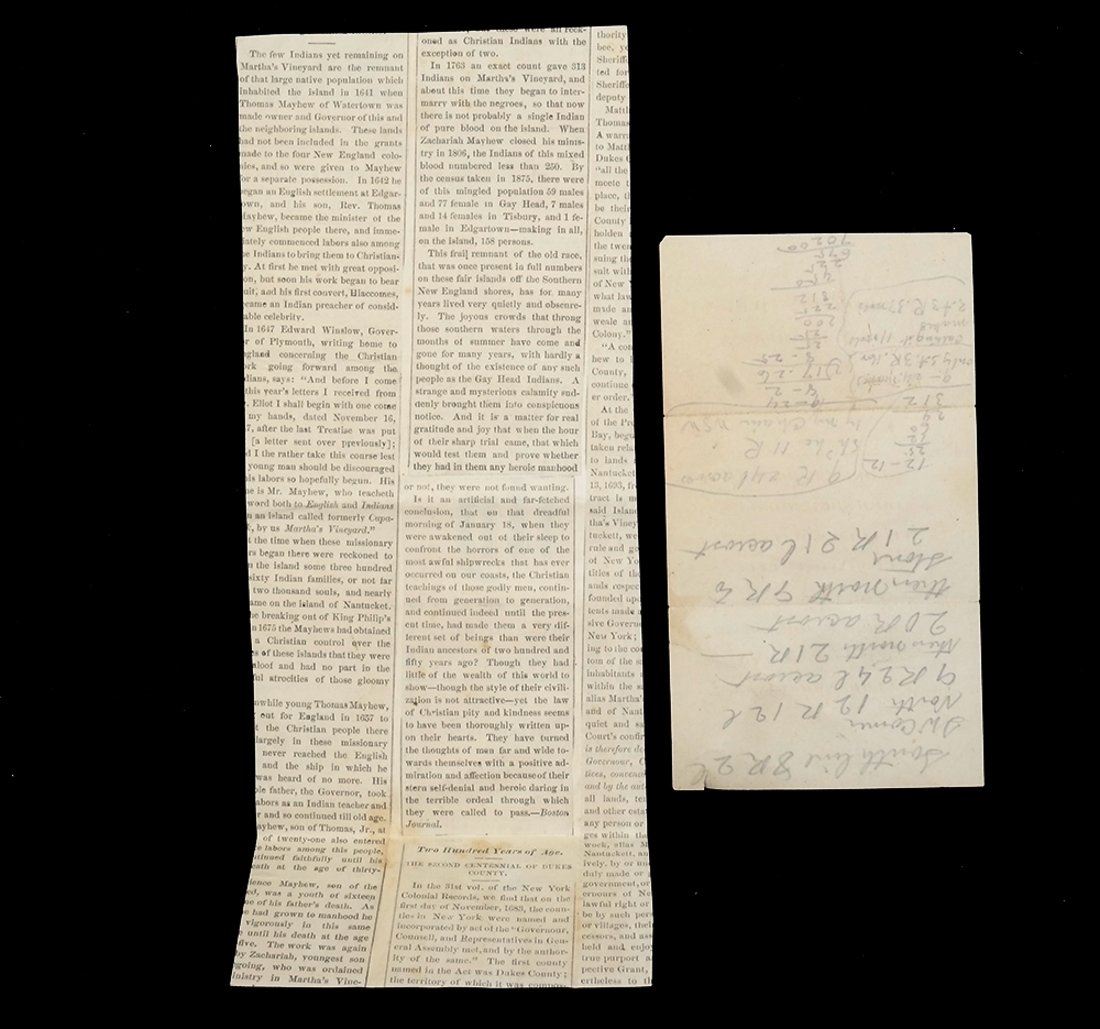 The few Indians yet remaining on
Martha's Vineyard are the remnant
of that large native population which
inhabited the island in 1641 when
Thomas Mayhew of Watertown was
made owner and Governor of this and
the neighboring islands. These lands
had not been included in the grants
made to the four New England colo-
nies, and so were given to Mayhew
for a separate possession. In 1642 he
began an English settlement at Edgar-
own, and his son, Rev. Thomas
Mayhew, became the minister of the
ew English people there, and imme-
iately commenced labors also among
e Indians to bring them to Christian-
y. At first he met with great opposi-
on, but soon his work began to bear
uit, and his first convert, Hiaccomes,
came an Indian preacher of consid-
able celebrity.
In 1647 Edward Winslow, Gover-
r of Plymouth, writing home to
ngland concerning the Christian
rk going forward among the
dians, says: "And before I come
this year's letters I received from
. Eliot I shall begin with one come
my hands, dated November 16,
7, after the last Treatise was put
[a letter sent over previously];
d I the rather take this course lest
young man should be discouraged
is labors so hopefully begun. His
ne is Mr. Mayhew, who teacheth
word both to English and Indians
n an island called formerly Capa-
, by us Martha's Vineyard."
t the time when these missionary
rs began there were reckoned to
n the island some three hundred
sixty Indian families, or not far
two thousand souls, and nearly
ame on the island of Nantucket.
he breaking out of King Philip's
n 1675 the Mayhews had obtained
a Christian control over the
s of these islands that they were
aloof and had no part in the
ful atrocities of those gloomy
nwhile young Thomas Mayhew,
out for England in 1657 to
t the Christian people there
largely in these missionary
never reached the English
and the ship in which he
was heard of no more. His
ble father, the Governor, took
abors as an Indian teacher and
r and so continued till old age.
ayhew, son of Thomas, Jr., at
of twenty-one also entered
e labors among this people,
ntinued faithfully until his
eath at the age of thirty-
ience Mayhew, son of the
ed, was a youth of sixteen
ne of his father's death. As
e had grown to manhood he
vigorously in this same
until his death at the age
five. The work was again
by Zachariah, youngest son
going, who was ordained
inistry in Martha's Vine-
these were all reck-
oned as Christian Indians with the
exception of two.
In 1763 an exact count gave 313
Indians on Martha's Vineyard, and
about this time they began to inter-
marry with the negroes, so that now
there is not probably a single Indian
of pure blood on the island. When
Zachariah Mayhew closed his minis-
try in 1806, the Indians of this mixed
blood numbered less than 250. By
the census taken in 1875, there were
of this mingled population 59 males
and 77 female in Gay Head, 7 males
and 14 females in Tisbury, and 1 fe-
male in Edgartown—making in all,
on the island, 158 persons.
This frail remnant of the old race,
that was once present in full numbers
on these fair islands off the Southern
New England shores, has for many
years lived very quietly and obscure-
ly. The joyous crowds that throng
those southern waters through the
months of summer have come and
gone for many years, with hardly a
thought of the existence of any such
people as the Gay Head Indians. A
strange and mysterious calamity sud-
denly brought them into conspicuous
notice. And it is a matter for real
gratitude and joy that when the hour
of their sharp trial came, that which
would test them and prove whether
they had in them any heroic manhood
or not, they were not found wanting.
Is it an artificial and far-fetched
conclusion, that on that dreadful
morning of January 18, when they
were awakened out of their sleep to
confront the horrors of one of the
most awful shipwrecks that has ever
occurred on our coasts, the Christian
teachings of those godly men, contin-
ued from generation to generation,
and continued indeed until the pres-
ent time, had made them a very dif-
ferent set of beings than were their
Indian ancestors of two hundred and
fifty years ago? Though they had
little of the wealth of this world to
show—though the style of their civili-
zation is not attractive—yet the law
of Christian pity and kindness seems
to have been thoroughly written up-
on their hearts. They have turned
the thoughts of men far and wide to-
wards themselves with a positive ad-
miration and affection because of their
stern self-denial and heroic daring in
the terrible ordeal through which
they were called to pass.—Boston
Journal.
Two Hundred Years of Age.
THE SECOND CENTENNIAL OF DUKES
COUNTY.
In the 31st vol. of the New York
Colonial Records, we find that on the
first day of November, 1683, the coun-
ties in New York were named and
incorporated by act of the "Governour,
Counsell, and Representatives in Gen-
eral Assembly met, and by the author-
ity of the same." The first county
named in the Act was Dukes County;
the territory of which it was compos-
thority
bee, yo
Sheriff
ted for
Sheriff
deputy
Matth
Thomas
A warra
to Matt
Dukes C
"all the
meete t
place, th
be their
County
holden
the twen
suing the
suit with
of New
what law
made an
weale an
Colony."
"A con
hew to
County,
continue
er order."
At the
of the Pr
Bay, begu
taken rela
to lands
Nantucket
13, 1693, fr
tract is m
said Islan
tha's Viney
tuckett, we
rule and go
of New Yo
titles of th
ands respec
founded up
tents made
sive Govern
New York;
ing to the co
tom of the s
inhabitants
within the s
alias Martha'
and of Nant
quiet and sa
Court's confir
is therefore de
Governour, C
tices, convena
and by the aut
all lands, te
and other esta
any person or
ges within the
work, alias M
Nantuckett, an
ively, by or un
duly made or
government, or
ernours of Ne
lawful right or
be by such pers
or villages, thei
cessors, and ass
held and enjoy
true purport a
pective Grant,
ertheless to th
South line 8 R 2 l
SW Corner
North 12 R 12 l
9 R 24 l acrost
then north 21 R
20 R acrost
then north 9 R 6
stone
21 R 21 l acrost
9 R 24 l acros
12-12
312